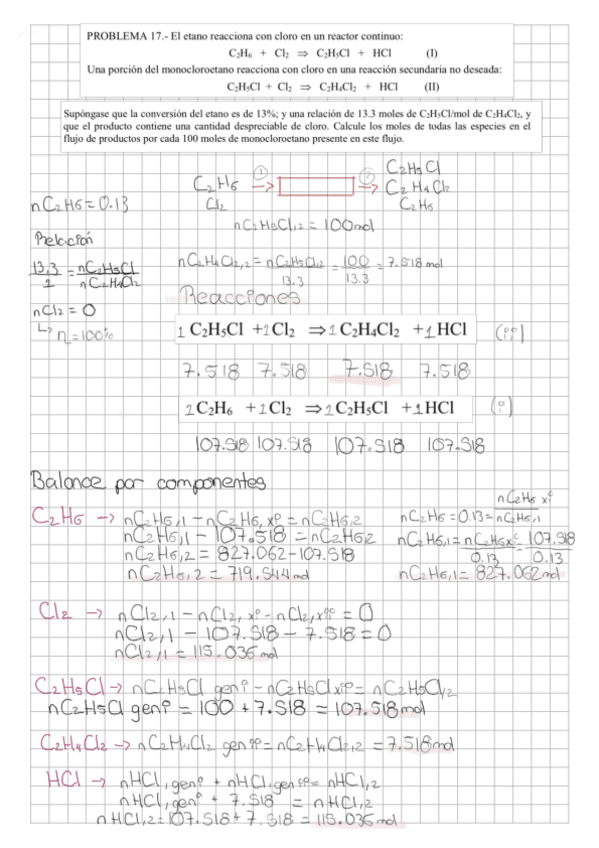 PROBLEMA 17.- El etano reacciona con cloro en un reactor continuo:
C₂H₆ + Cl₂ ⇒ C₂H₅Cl + HCl (I)
Una porción del monocloroetano reacciona con cloro en una reacción secundaria no deseada:
C₂H₅Cl + Cl₂ ⇒ C₂H₄Cl₂ + HCl (II)
Supóngase que la conversión del etano es de 13%; y una relación de 13.3 moles de C₂H₅Cl/mol de C₂H₄Cl₂, y
que el producto contiene una cantidad despreciable de cloro. Calcule los moles de todas las especies en el
flujo de productos por cada 100 moles de monocloroetano presente en este flujo.
C₂H₆ → ① → ② C₂H₅Cl
Cl₂ C₂H₄Cl₂
C₂H₆
nC₂H₆ = 0.13
nC₂H₅Cl,2 = 100mol
Relación
13.3/1 = nC₂H₅Cl/nC₂H₄Cl₂
nC₂H₄Cl₂,2 = nC₂H₅Cl,2/13.3 = 100/13.3 = 7.518 mol
Reacciones
nCl₂ = 0
↳ η = 100%
1 C₂H₅Cl + 1 Cl₂ ⇒ 1 C₂H₄Cl₂ + 1 HCl (ii)
7.518 7.518 7.518 7.518
1 C₂H₆ + 1 Cl₂ ⇒ 1 C₂H₅Cl + 1 HCl (i)
107.518 107.518 107.518 107.518
Balance por componentes
C₂H₆ → nC₂H₆,1 - nC₂H₆,xⁱ = nC₂H₆,2
nC₂H₆,1 - 107.518 = nC₂H₆,2
nC₂H₆,2 = 827.062 - 107.518
nC₂H₆,2 = 719.544 mol
nC₂H₆ = 0.13 = nC₂H₆ xⁱ/nC₂H₆,1
nC₂H₆,1 = nC₂H₆xⁱ/0.13 = 107.518/0.13
nC₂H₆,1 = 827.062 mol
Cl₂ → nCl₂,1 - nCl₂,xⁱ - nCl₂,xⁱⁱ = 0
nCl₂,1 - 107.518 - 7.518 = 0
nCl₂,1 = 115.036 mol
C₂H₅Cl → nC₂H₅Cl genⁱ - nC₂H₅Cl xⁱⁱ = nC₂H₅Cl,2
nC₂H₅Cl genⁱ = 100 + 7.518 = 107.518 mol
C₂H₄Cl₂ → nC₂H₄Cl₂ genⁱⁱ = nC₂H₄Cl₂,2 = 7.518 mol
HCl → nHCl,genⁱ + nHCl,genⁱⁱ = nHCl,2
nHCl,genⁱ + 7.518 = nHCl,2
nHCl,2 = 107.518 + 7.518 = 115.036 mol